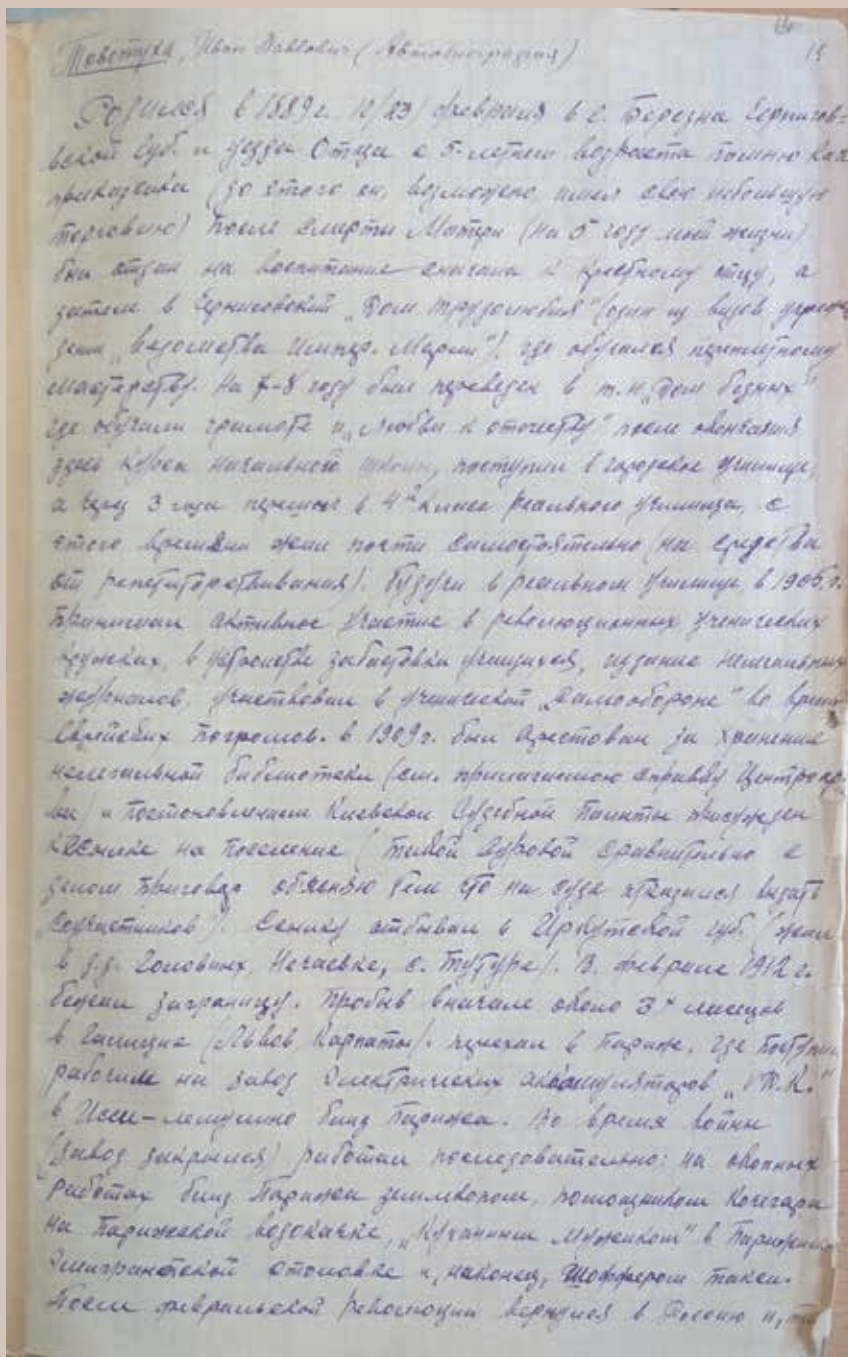 15
Товстуха, Иван Павлович (Автобиография)
Родился в 1889 г. 10/23/ февраля в с. Березна Чернигов-
вской губ. и уезда Отца с 5-летнего возраста помню как
приказчика (до этого он, возможно, имел свою небольшую
торговлю) После смерти Матери (на 5 году моей жизни)
был отдан на воспитание сначала к крестному отцу, а
затем в Черниговский „Дом трудолюбия" (один из видов учреж-
дений „ведомства Импер. Марии"). где обучался переплетному
мастерству. На 7-8 году был переведен в т.н. „Дом бедных"
где обучали грамоте и „любви к отечеству" после окончания
здесь курса начального школы, поступил в городское училище,
а через 3 года перешел в 4й класс реального училища, с
этого времени жил почти самостоятельно (на средства
от репетиторствования). Будучи в реальном училище, в 1905 г.
принимал активное участие в революционных ученических
кружках, в устройстве забастовки учащихся, издание нелегальных
журналов, участвовал в ученической „самообороне" во время
Еврейских погромов. в 1909 г. был арестован за хранение
нелегальной библиотеки (см. прилагаемою справку
и постановлением Киевской Судебной Палаты присужден
к ссылке на поселение (такой суровой сравнительно с
делом приговор объясняю тем что на суде отказался выдать
соучастников). Ссылку отбывал в Иркутской губ. (жил
в д.д. Головных, Нечаевке, с. Тутуре). В феврале 1912 г.
бежал заграницу. Пробыв вначале около 3х месяцев
в Галиции (Львов, Карпаты). приехал в Париж. где поступил
рабочим на завод Электрических аккумуляторов
в Исси-лемулино близ Парижа. Во время войны
(завод закрылся) работал последовательно: на окопных
работах близ Парижа землекопом, помощником Кочегара
на Парижской водокачке, „Кухонным мужиком" в Парижской
Эмигрантской столовке и, наконец, Шоффером такси.
После февральской революции вернулся в Россию и,